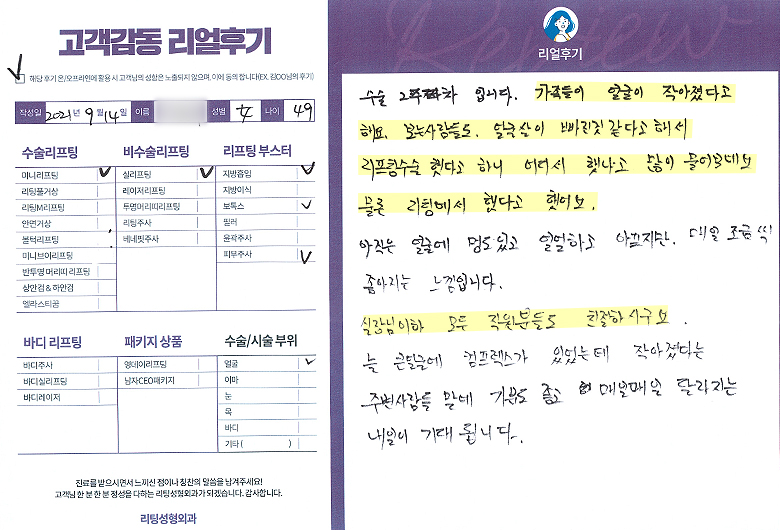 고객감동 리얼후기
해당 후기 온/오프라인에 활용 시 고객님의 성함은 노출되지 않으며, 이에 동의 합니다(EX. 김OO님의 후기)
작성일 2021년 9월 14일 이름 성별 女 나이 49
수술리프팅
미니리프팅
리팅풀거상
리팅M리프팅
안면거상
볼턱리프팅
미니브이리프팅
반투명 머리띠 리프팅
상안검 & 하안검
엘라스티꿈
비수술리프팅
실리프팅
레이저리프팅
투명머리띠리프팅
리팅주사
베네핏주사
리프팅 부스터
지방흡입
지방이식
보톡스
필러
윤곽주사
피부주사
바디 리프팅
바디주사
바디실리프팅
바디레이저
패키지 상품
영데이리프팅
남자CEO패키지
수술/시술 부위
얼굴
이마
눈
목
바디
기타 ( )
진료를 받으시면서 느끼신 점이나 칭찬의 말씀을 남겨주세요!
고객님 한 분 한 분 정성을 다하는 리팅성형외과가 되겠습니다. 감사합니다.
리팅성형외과
Review
리얼후기
수술 2주차 입니다. 가족들이 얼굴이 작아졌다고
해요. 보는사람들도. 얼굴살이 빠진것 같다고해서
리프팅수술 했다고 하니 어디서 했냐고 많이 물어보네요
물론 리팅에서 했다고 했어요.
아직은 얼굴에 멍도있고 얼얼하고 아프지만. 매일 조금씩
좋아지는 느낌입니다.
실장님이하 모두 직원분들도 친절하시구요.
늘 큰얼굴에 컴프렉스가 있었는데 작아졌다는
주변사람들 말에 기분도 좋고 매일매일 달라지는
내일이 기대 됩니다.